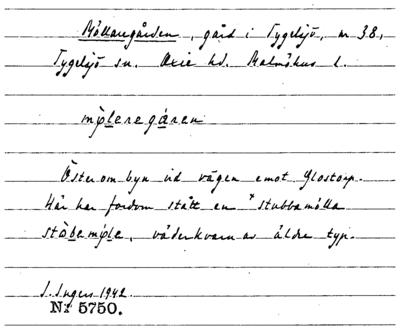 Möllaregården, gård i Tygelsjö, nr 38,
Tygelsjö sn. Oxie hd. Malmöhus l.
mø̀lleregåren
Öster om byn vid vägen emot Glostorp.
Här har fordom stått en *stubbamölla
stòbemøle, väderkvarn av äldre typ.
S. Ingers 1942.
Nr 5750.